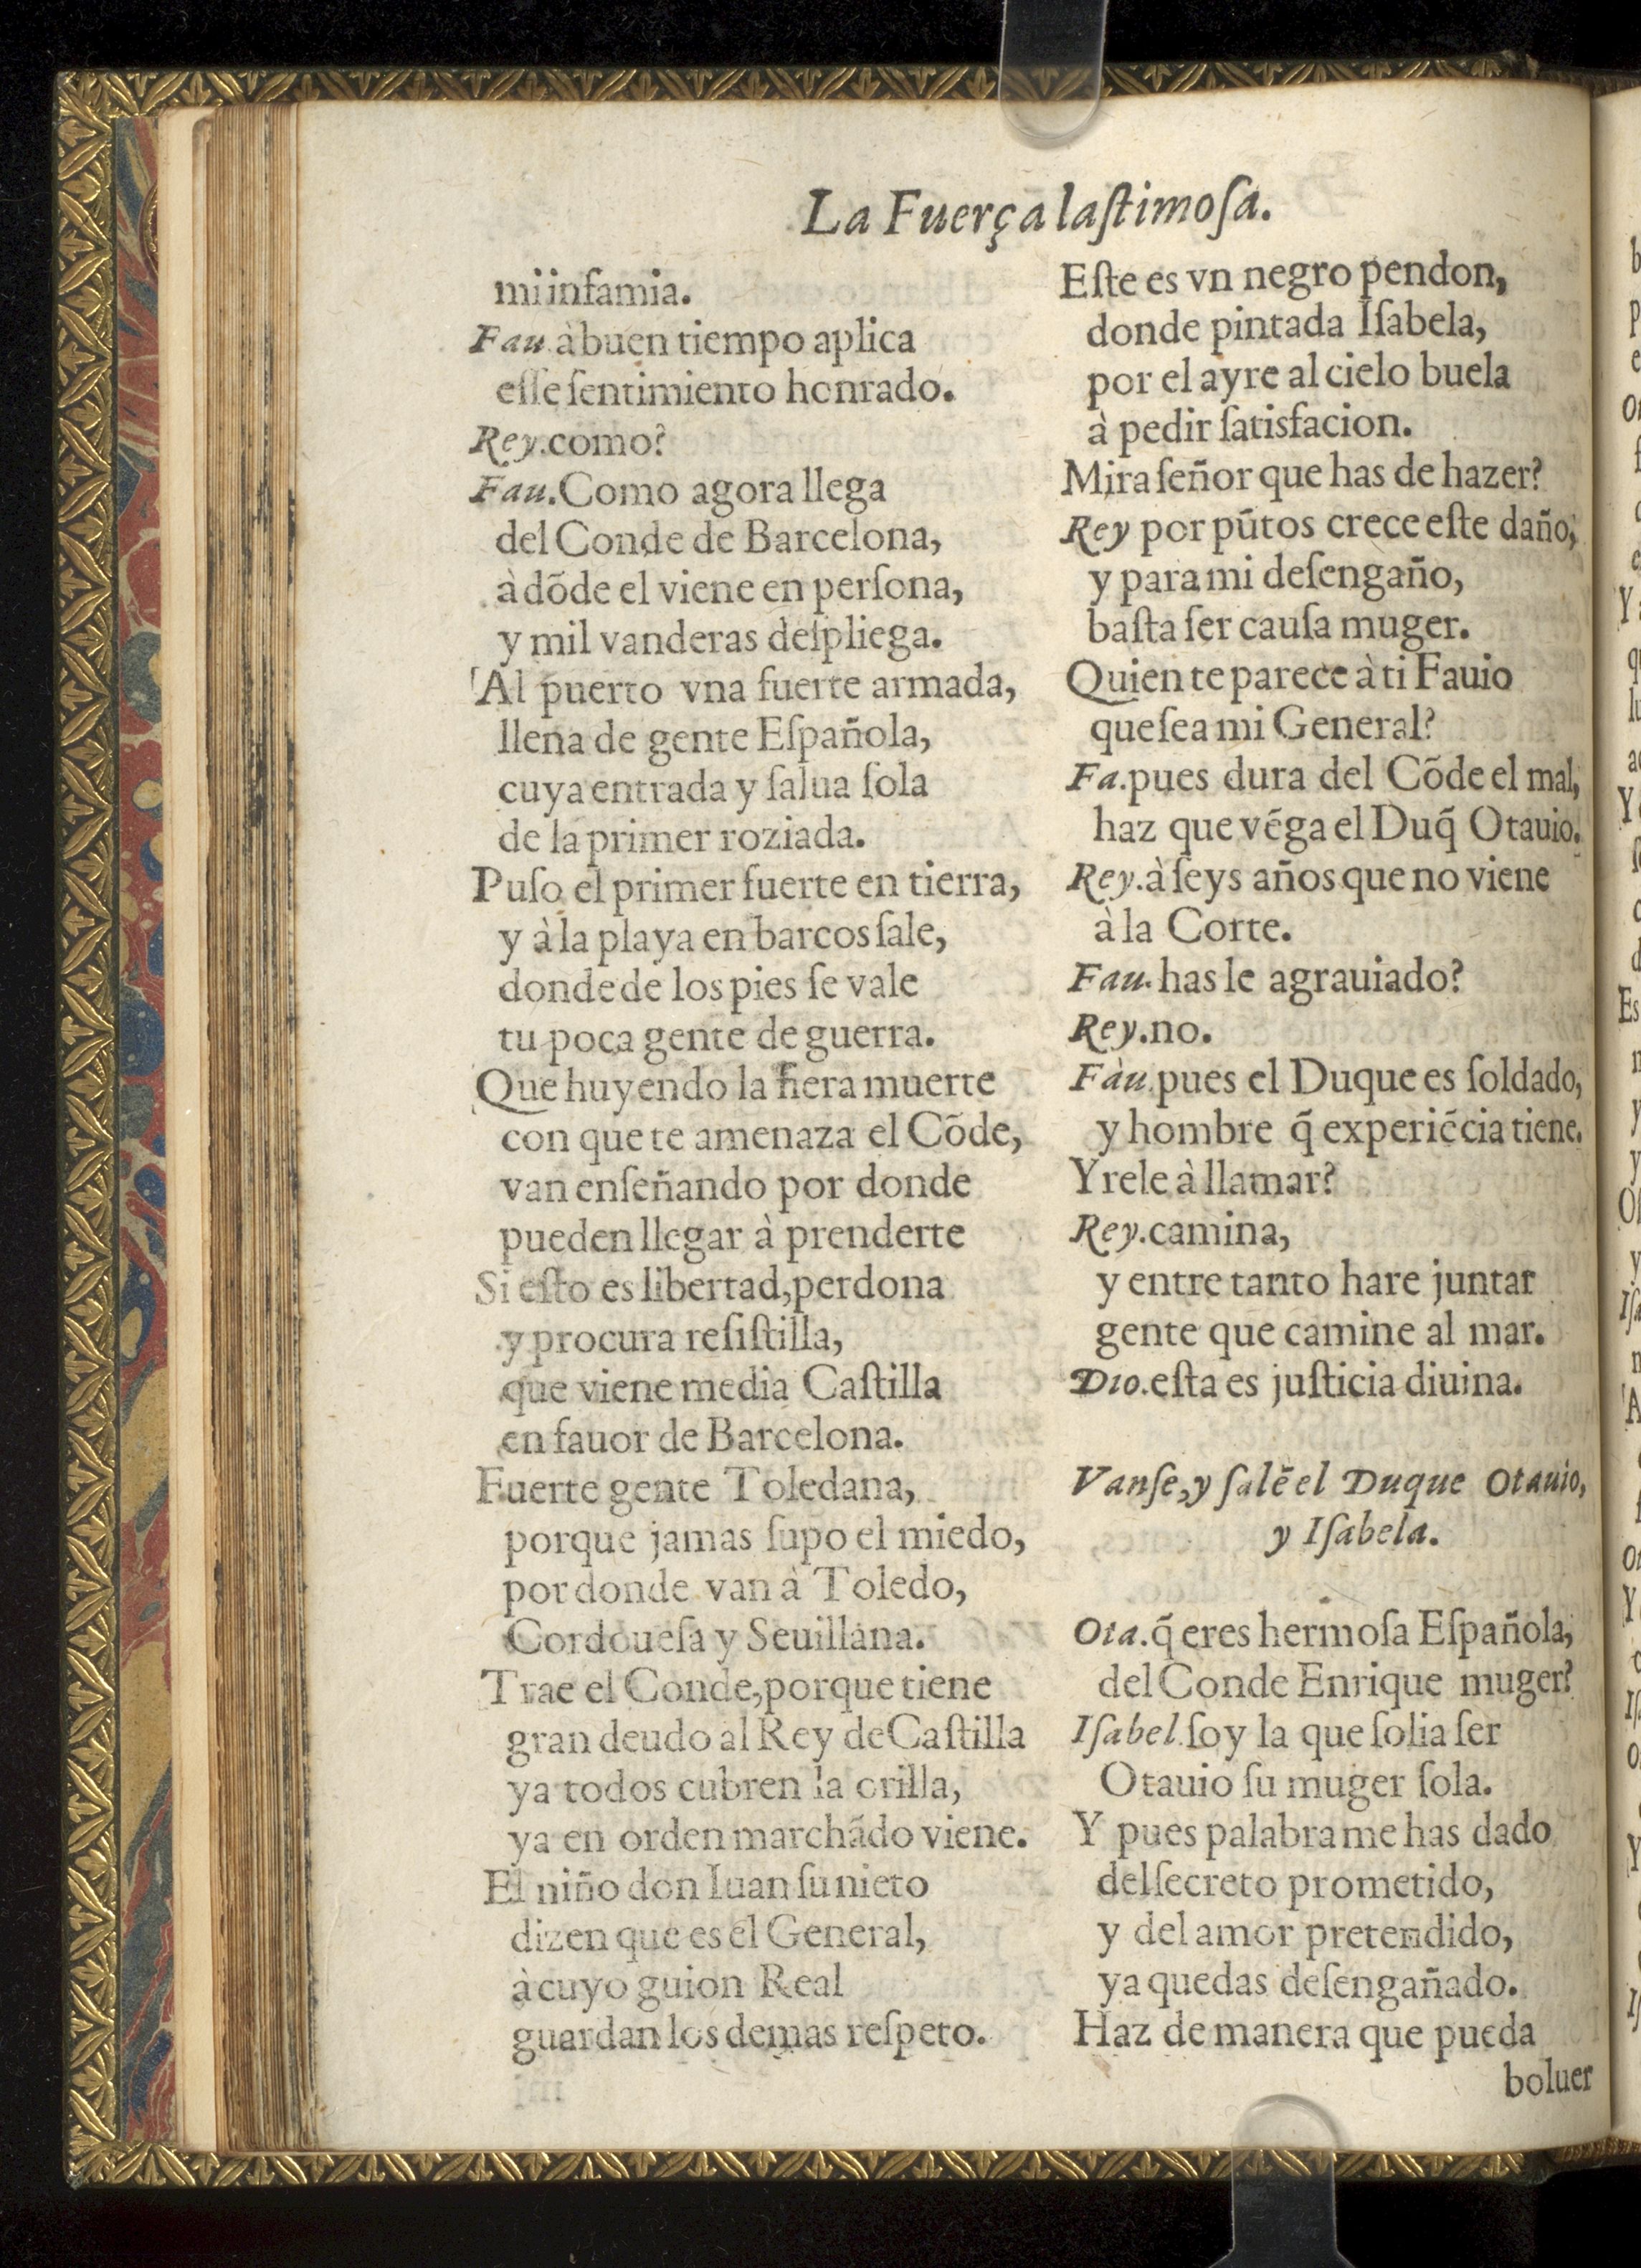 La Fuerça laſtimoſa.
mi infamia.
Fau. à buen tiempo aplica
eſſe ſentimiento honrado.
Rey. como?
Fau. Como agora llega
del Conde de Barcelona,
à dõde el viene en perſona,
y mil vanderas deſpliega.
Al puerto vna fuerte armada,
llena de gente Eſpañola,
cuya entrada y ſalua ſola
de la primer roziada.
Puſo el primer fuerte en tierra,
y à la playa en barcos ſale,
donde de los pies ſe vale
tu poca gente de guerra.
Que huyendo la fiera muerte
con que te amenaza el Cõde,
van enſeñando por donde
pueden llegar à prenderte
Si eſto es libertad, perdona
y procura reſiſtilla,
que viene media Caſtilla
en fauor de Barcelona.
Fuerte gente Toledana,
porque jamas ſupo el miedo,
por donde van à Toledo,
Cordoueſa y Seuillana.
Trae el Conde, porque tiene
gran deudo al Rey de Caſtilla
ya todos cubren la orilla,
ya en orden marchãdo viene.
El niño don Iuan ſu nieto
dizen que es el General,
à cuyo guion Real
guardan los demas reſpeto.
Eſte es vn negro pendon,
donde pintada Iſabela,
por el ayre al cielo buela
à pedir ſatisfacion.
Mira ſeñor que has de hazer?
Rey por pũtos crece eſte daño,
y para mi deſengaño,
baſta ſer cauſa muger.
Quien te parece à ti Fauio
que ſea mi General?
Fa. pues dura del Cõde el mal,
haz que vẽga el Duq̃ Otauio.
Rey. à ſeys años que no viene
à la Corte.
Fau. has le agrauiado?
Rey. no.
Fàu. pues el Duque es ſoldado,
y hombre q̃ experiẽcia tiene.
Yrele à llamar?
Rey. camina,
y entre tanto hare juntar
gente que camine al mar.
Dio. eſta es juſticia diuina.
Vanſe, y ſalẽ el Duque Otauio,
y Iſabela.
Ota. q̃ eres hermoſa Eſpañola,
del Conde Enrique muger?
Iſabel. ſoy la que ſolia ſer
Otauio ſu muger ſola.
Y pues palabra me has dado
del ſecreto prometido,
y del amor pretendido,
ya quedas deſengañado.
Haz de manera que pueda
boluer